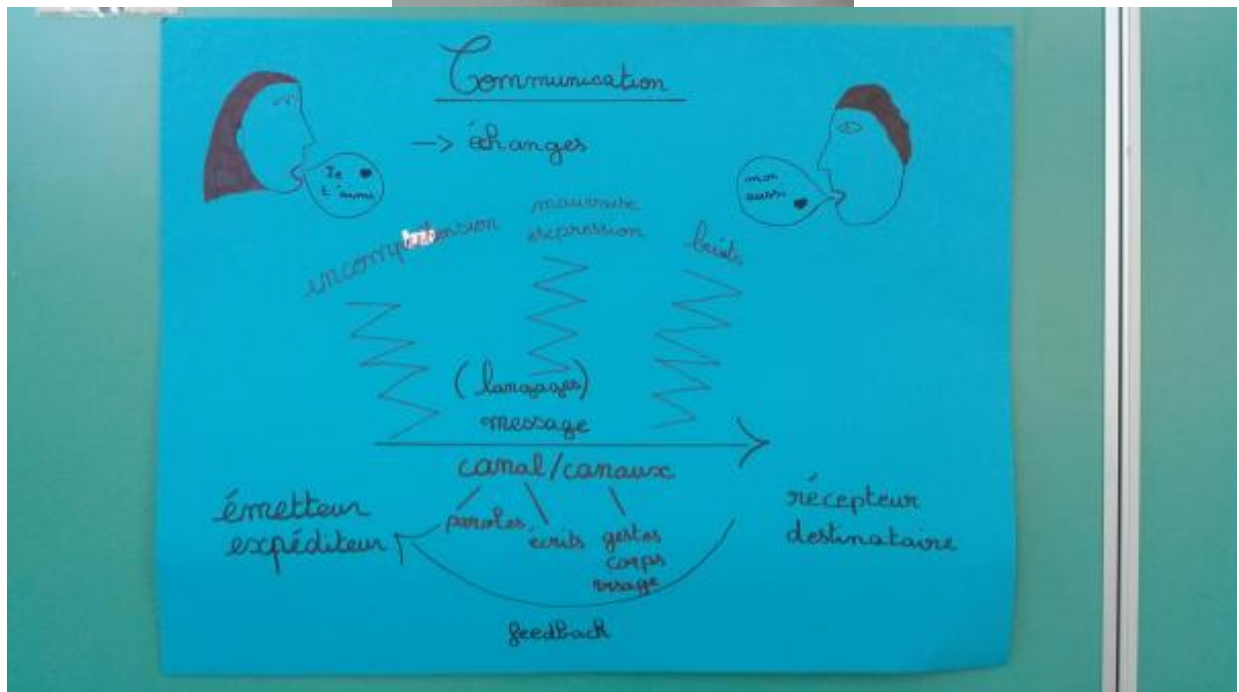 Communication
-> échanges
Je ♥
t'aime
moi
aussi ♥
incompréhension
mauvaise
expression
bruits
(langages)
message
canal/canaux
paroles
écrits
gestes
corps
visage
émetteur
expéditeur
récepteur
destinataire
feedback